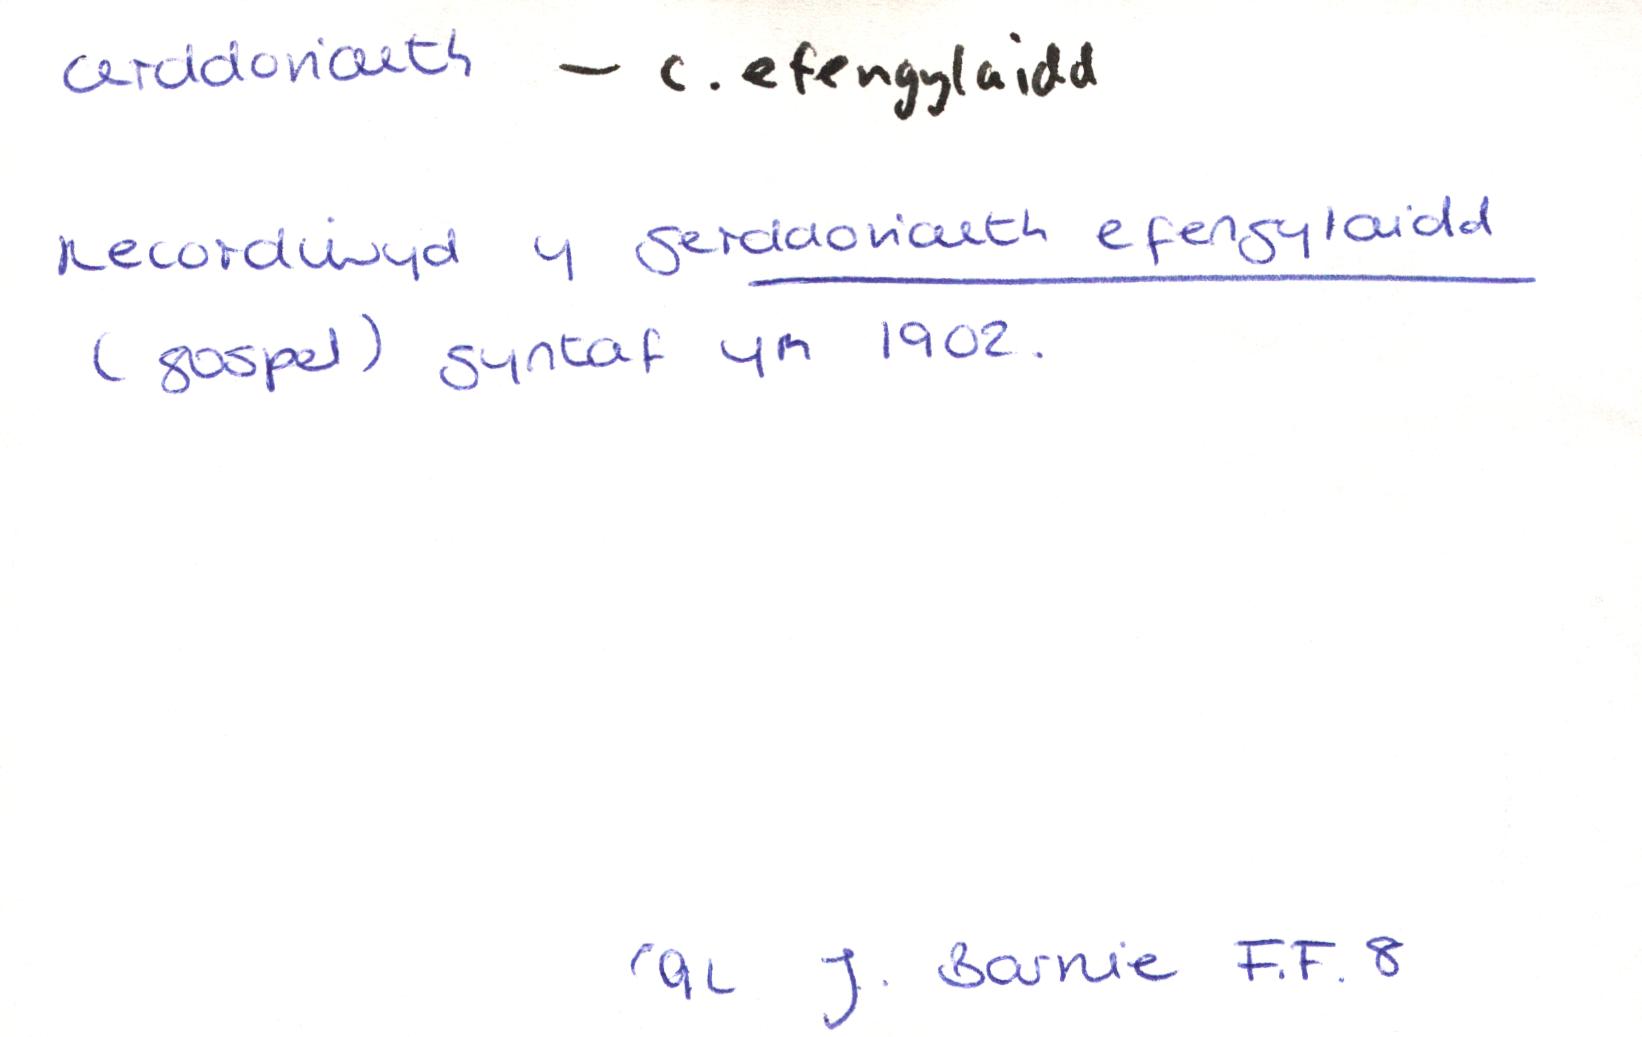 cerddoriaeth — c. efengylaidd
Recordiwyd y gerddoriaeth efengylaidd
(gospel) gyntaf ym 1902.
J. Barnie F.F. 8